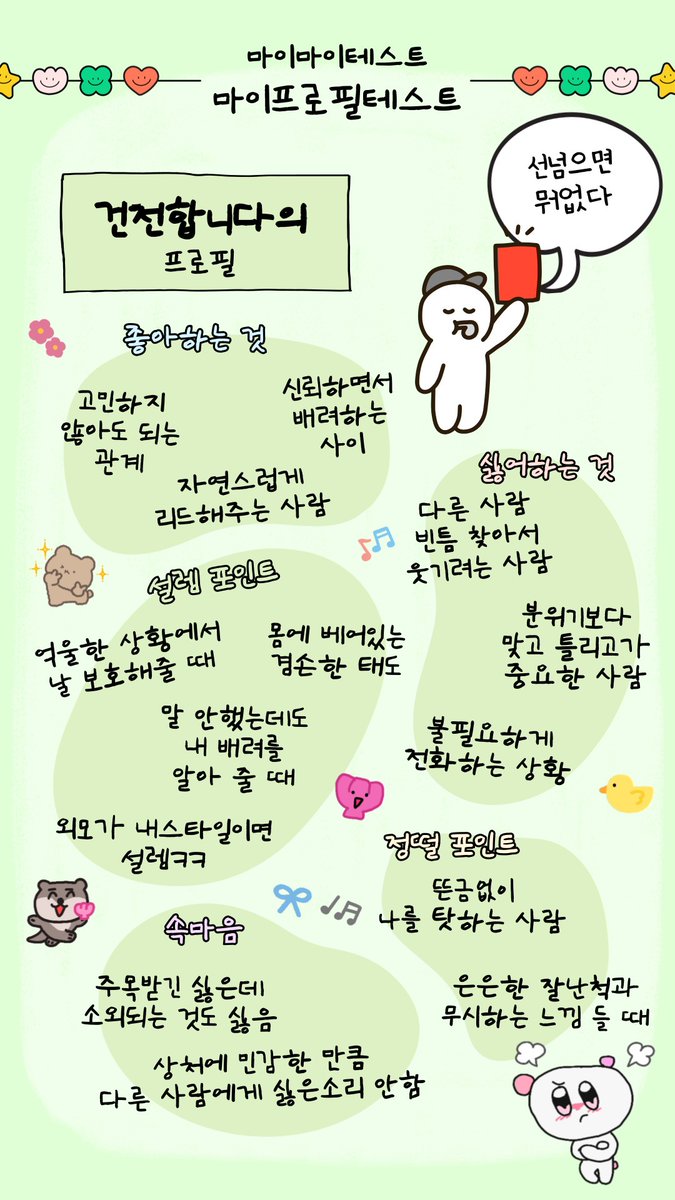 마이마이테스트
마이프로필테스트
선넘으면
뭐없다
건전합니다의
프로필
좋아하는 것
고민하지
않아도 되는
관계
신뢰하면서
배려하는
사이
자연스럽게
리드해주는 사람
싫어하는 것
다른 사람
빈틈 찾아서
웃기려는 사람
분위기보다
맞고 틀리고가
중요한 사람
불필요하게
전화하는 상황
설렘 포인트
억울한 상황에서
날 보호해줄 때
몸에 베어있는
겸손한 태도
말 안했는데도
내 배려를
알아 줄 때
외모가 내스타일이면
설렘ㅋㅋ
정떨 포인트
뜬금없이
나를 탓하는 사람
은은한 잘난척과
무시하는 느낌 들 때
속마음
주목받긴 싫은데
소외되는 것도 싫음
상처에 민감한 만큼
다른 사람에게 싫은소리 안함